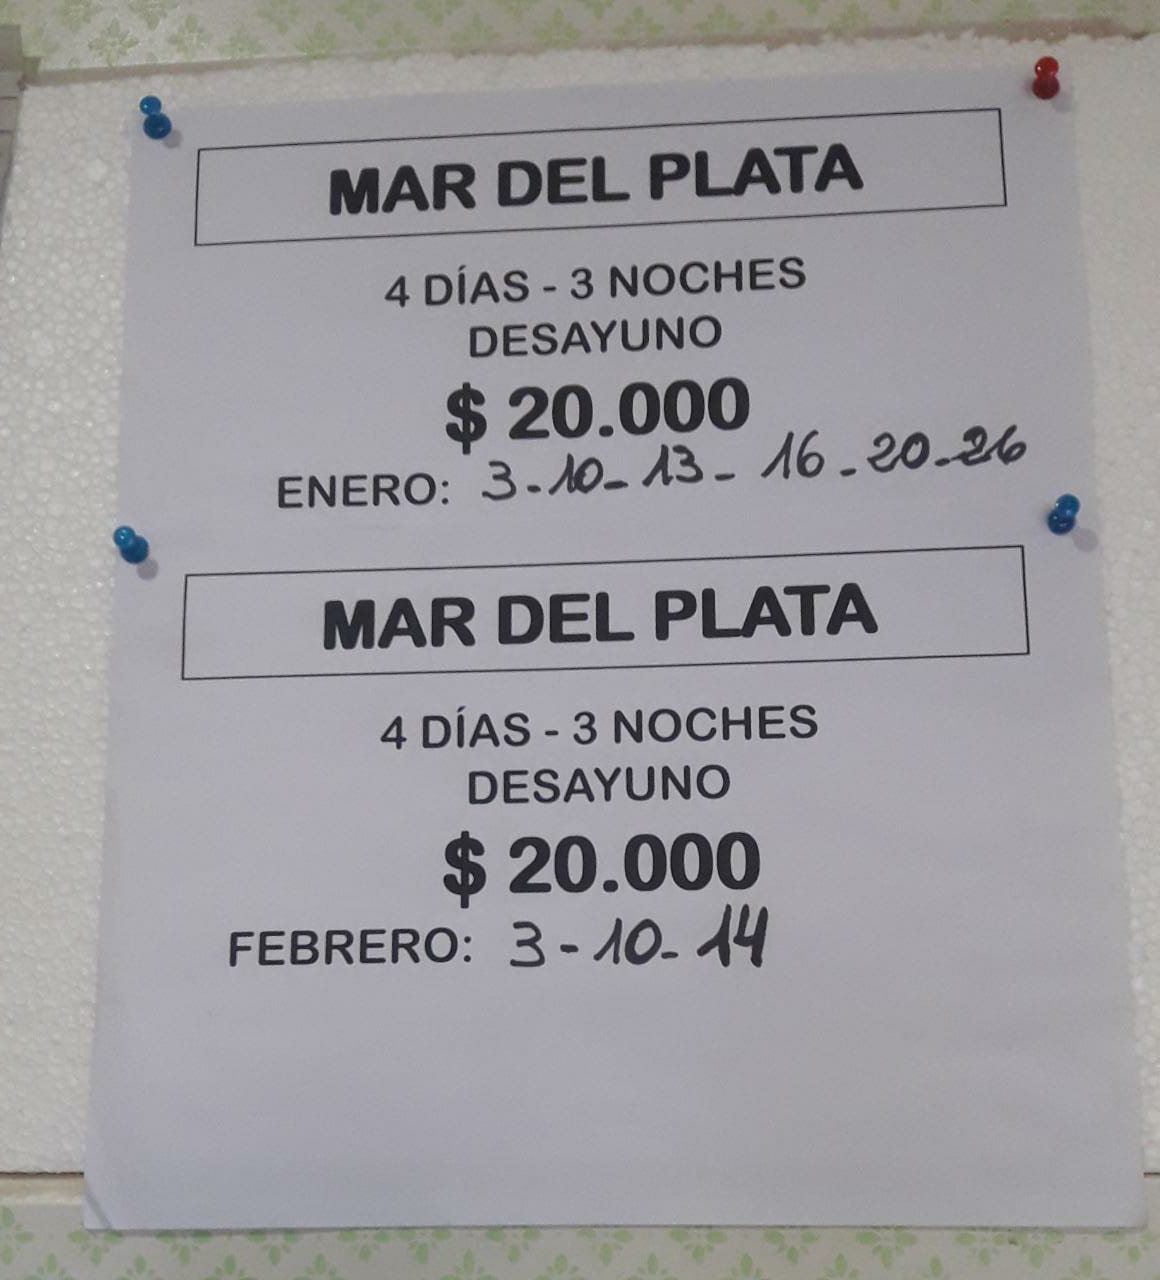 MAR DEL PLATA
4 DÍAS - 3 NOCHES
DESAYUNO
$ 20.000
ENERO: 3-10-13-16-20-26
MAR DEL PLATA
4 DÍAS - 3 NOCHES
DESAYUNO
$ 20.000
FEBRERO: 3-10-14